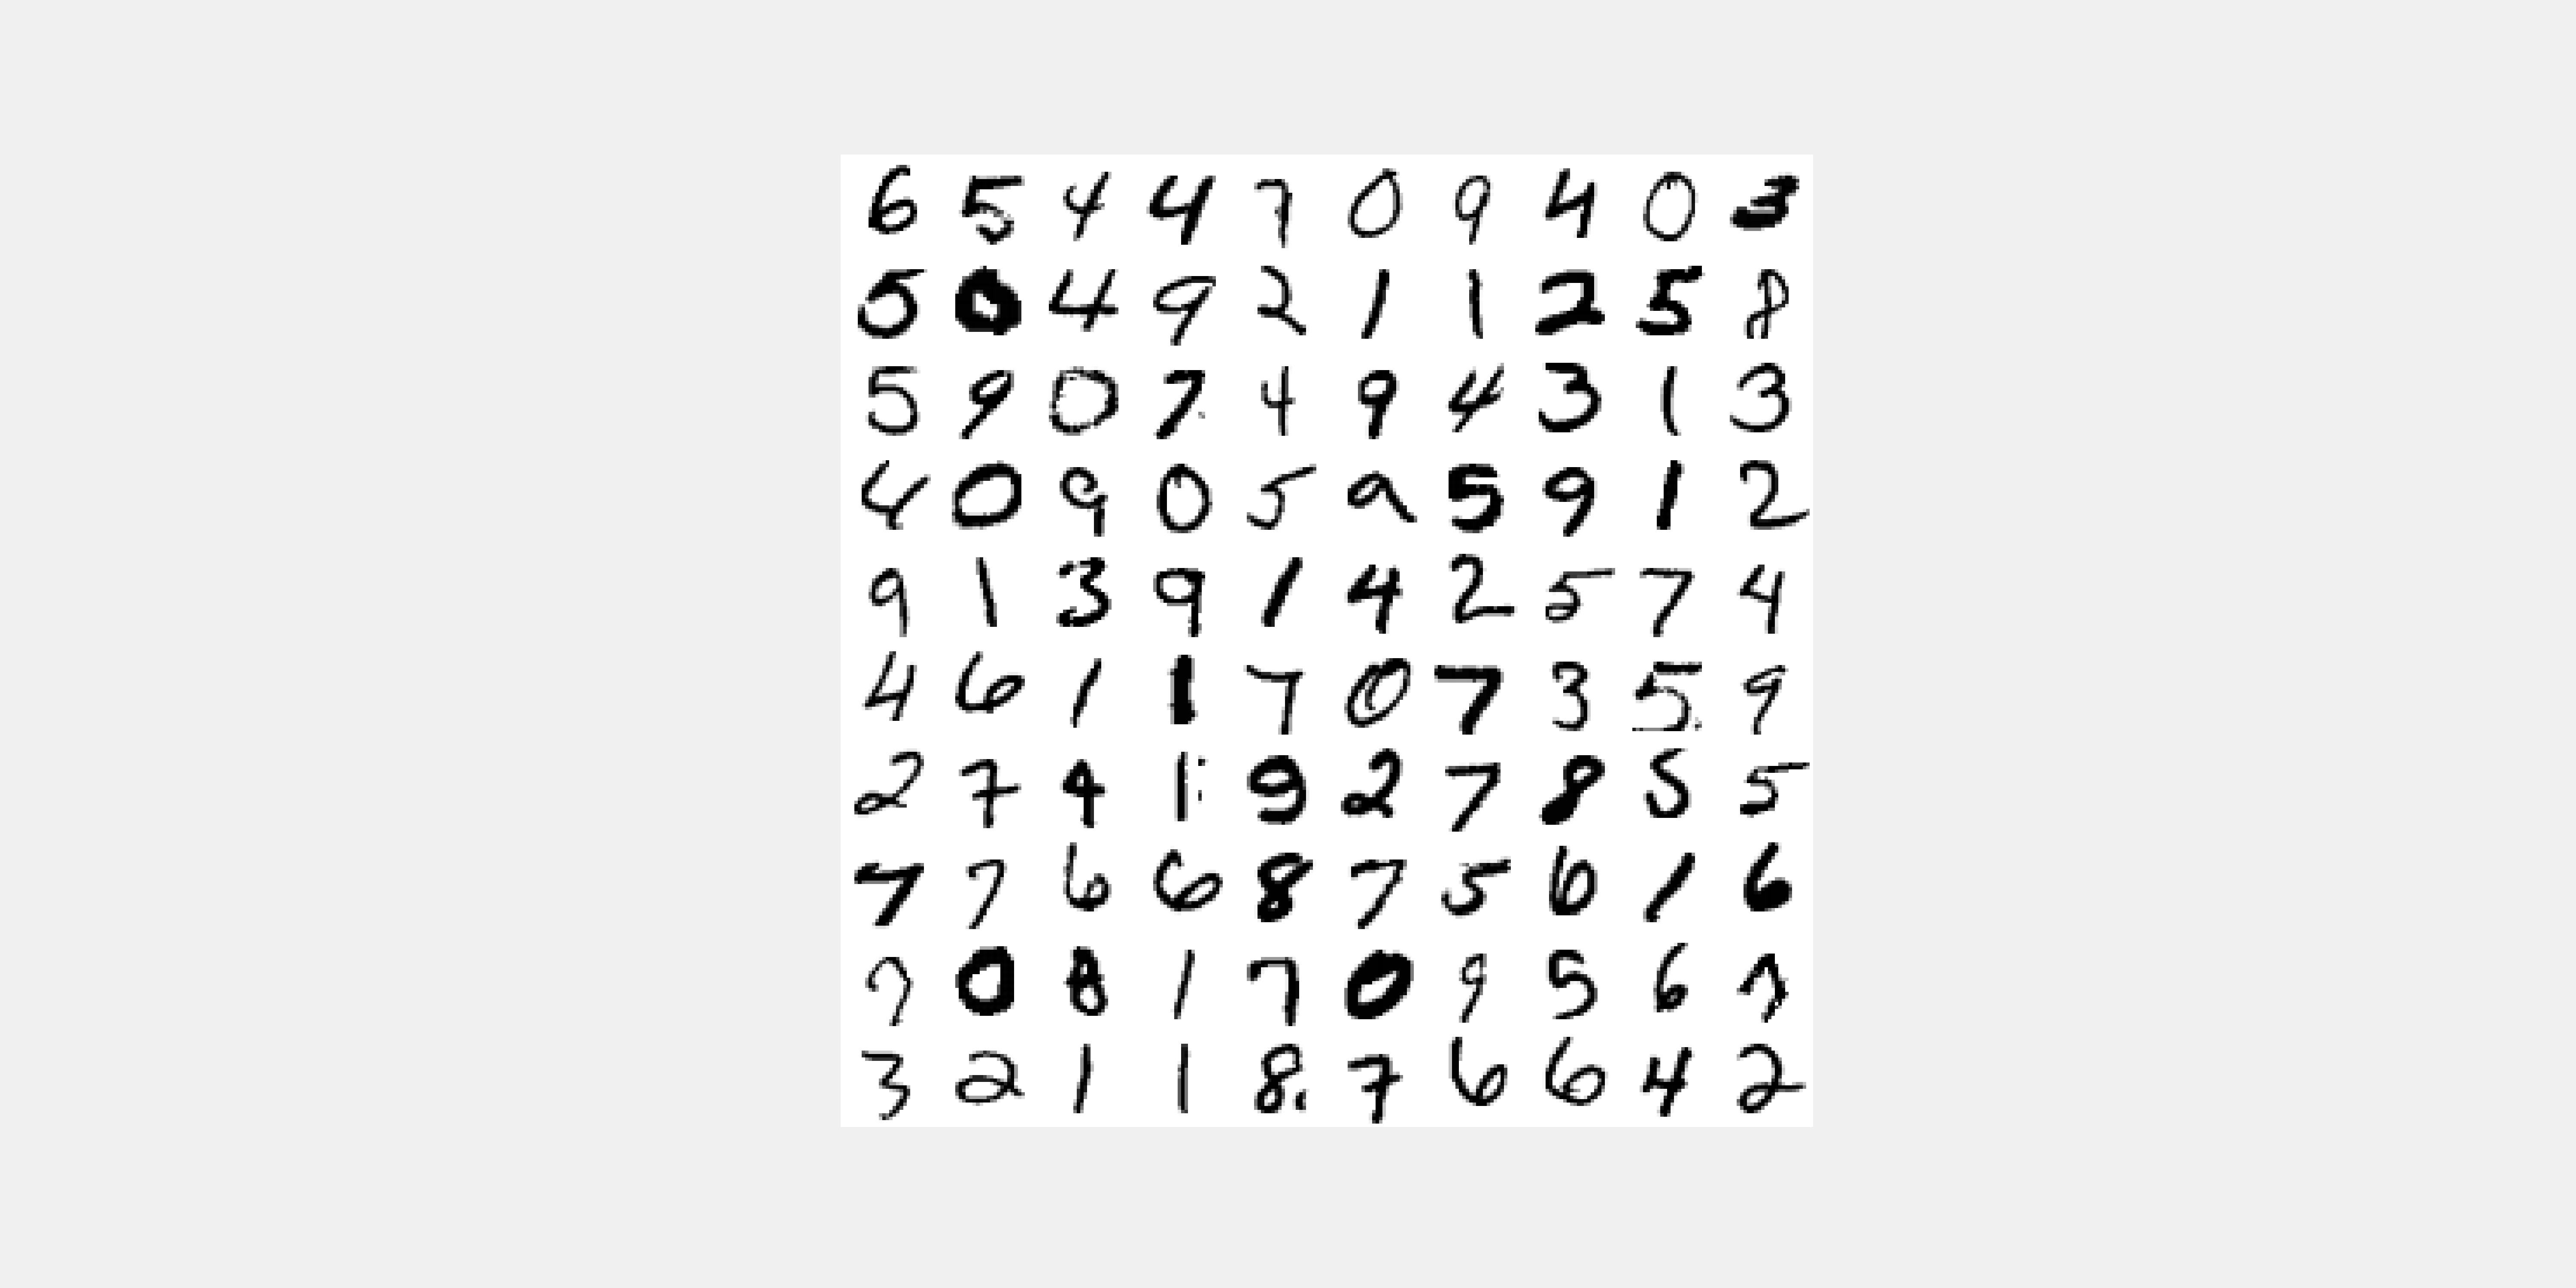 6 5 4 4 7 0 9 4 0 3
5 0 4 9 2 1 1 2 5 8
5 9 0 7 4 9 4 3 1 3
4 0 9 0 5 9 5 9 1 2
9 1 3 9 1 4 2 5 7 4
4 6 1 1 7 0 7 3 5 9
2 7 4 1 9 2 7 8 5 5
7 7 6 6 8 7 5 6 1 6
7 0 8 1 7 0 9 5 6 7
3 2 1 1 8 7 6 6 4 2